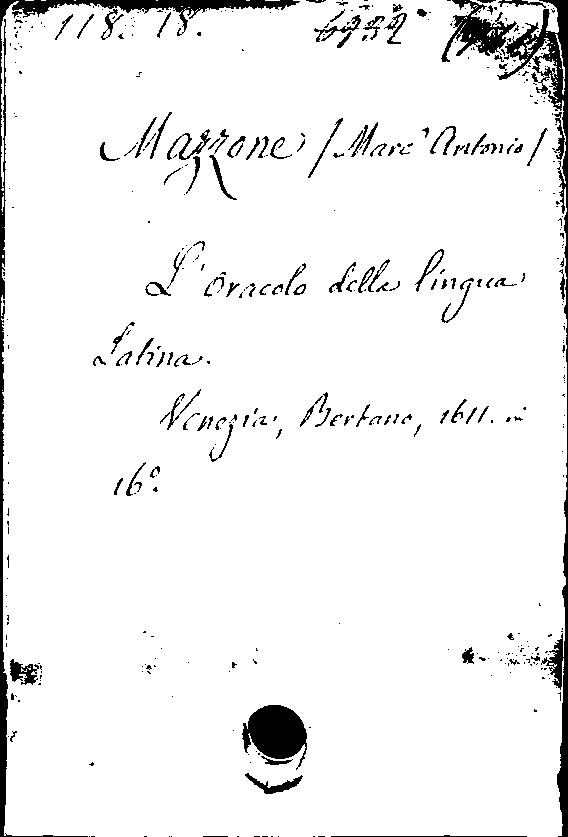 118. 18.
Mazzone /Marc' Antonio/
L'oracolo della lingua
Latina.
Venezia, Bertano, 1611. in
16º.